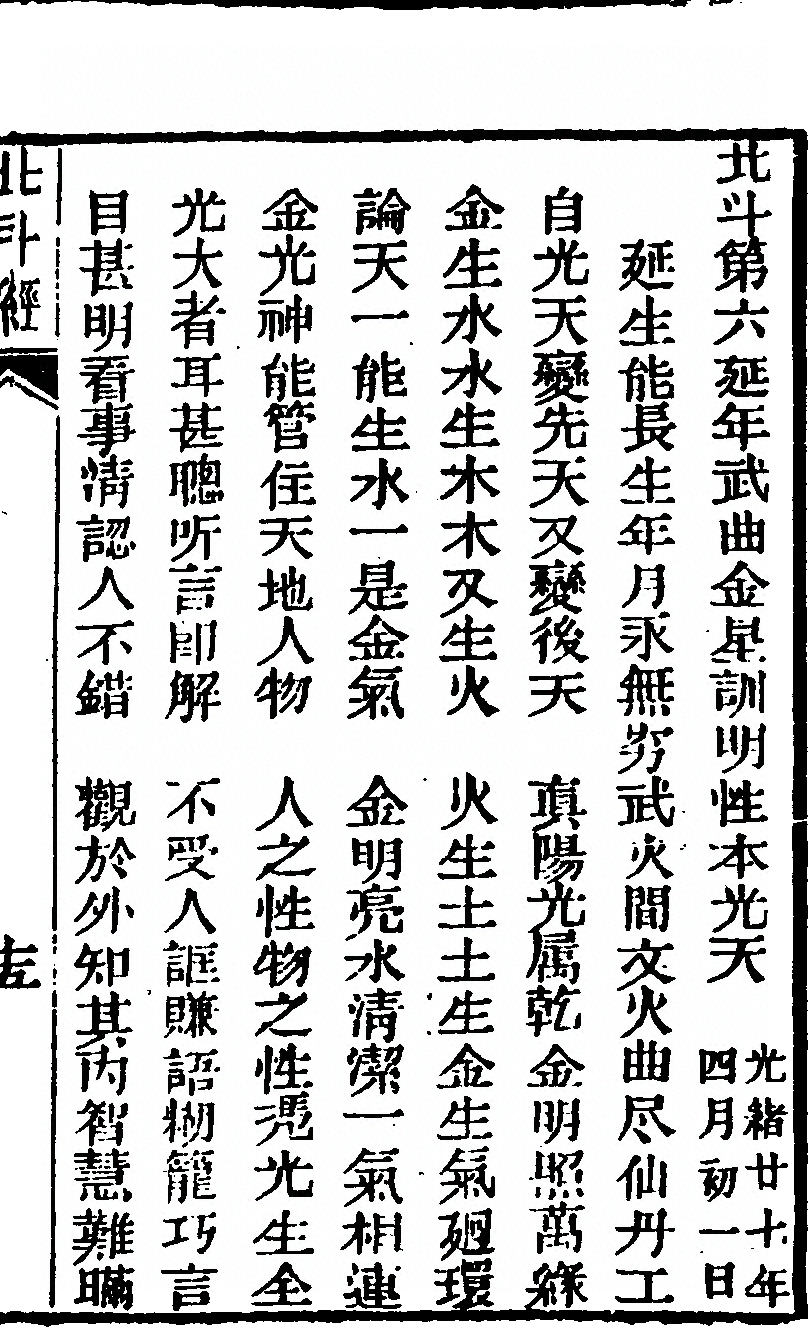 北斗第六延年武曲金星訓明性本光天
光緒廿十年
四月初一日
延生能長生年月永無穷武火間文火曲尽仙丹工
自光天變先天又變後天　真陽光属乾金明照萬緣
金生水水生木木又生火　火生土土生金生氣廻環
論天一能生水一是金氣　金明亮水清潔一氣相連
金光神能管住天地人物　人之性物之性凴光生全
光大者耳甚聰听言即解　不受人誆賺語糊籠巧言
目甚明看事情認人不錯　觀於外知其內智慧難瞞
北斗經